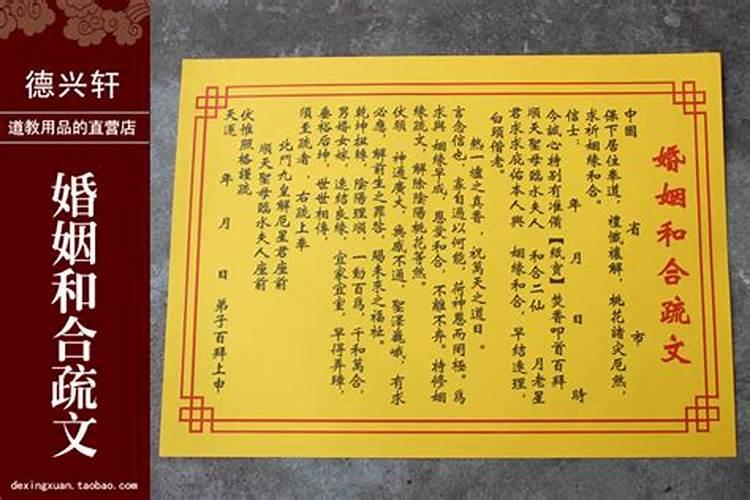 德兴轩
道教用品的直营店
婚姻和合疏文
dexingxuan.taobao.com
婚姻和合疏文
中國 省 市
保下居住奉道,禮懺禳解,桃花諸灾厄煞,
求祈姻緣和合。
信士: 年 月 日 時
今誠心特别有准備【紙寶】焚香叩首百拜
順天聖母臨水夫人 和合二仙 月老星
君求求庇佑本人與 姻緣和合,早結連理,
白頭偕老。
熱一爐之真香,祝萬天之道日。
言念信也,拿自過以何能,荷神恩而罔極。爲
求與 姻緣早成,恩愛和合,不離不弃。特修姻
緣疏文,解除陰陽桃花等煞。
伏願 神通廣大,無感不通,聖澤巍峨,有求
必應,解前生之罪咎,賜未來之福祉。
乾坤扭轉,陰陽理順,一動百爲,千和萬合,
男婚女嫁,速結良緣,宜家宜室,早得弄璋,
垂裕后坤,世世相傳,
須至疏者,右疏上奉
北鬥九皇解厄星君座前
順天聖母臨水夫人座前
伏惟照格謹疏
天運 年 月 日 弟子百拜上申